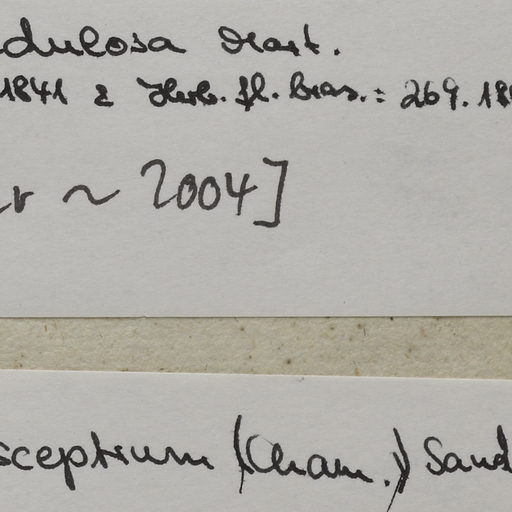 dulosa Mart.
1841 & Herb. fl. bras.: 269. 184
~ 2004]
sceptrum (Cham.) Sand